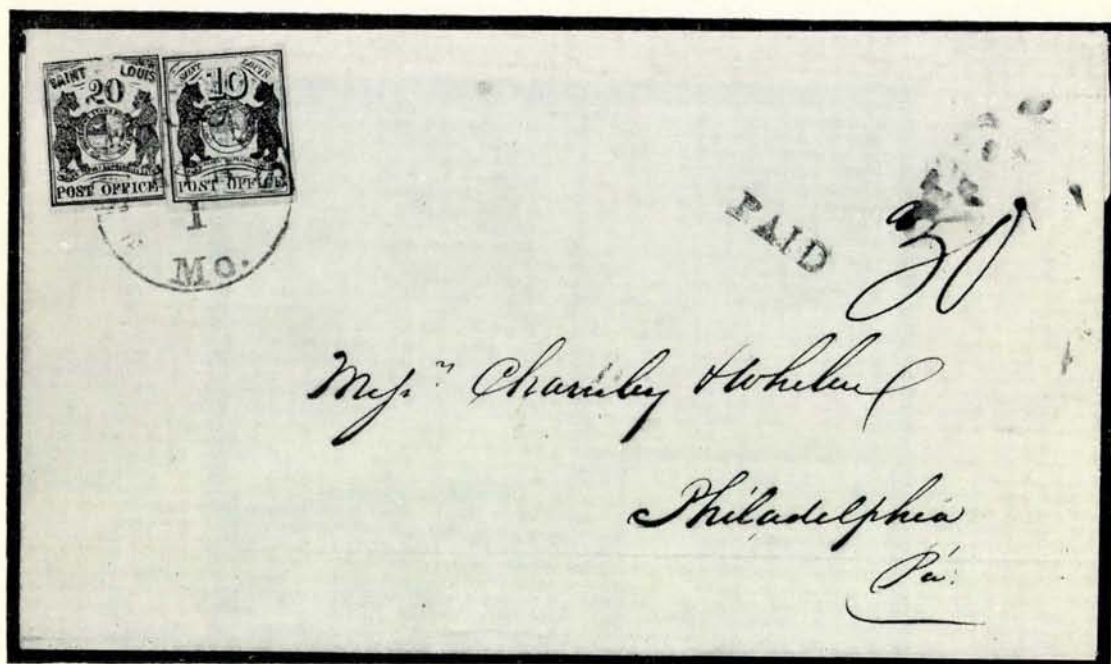 SAINT LOUIS
20
POST OFFICE
SAINT LOUIS
10
POST OFFICE
1
Mo.
PAID
30
Messrs Charnley & Whelen
Philadelphia
Pa.